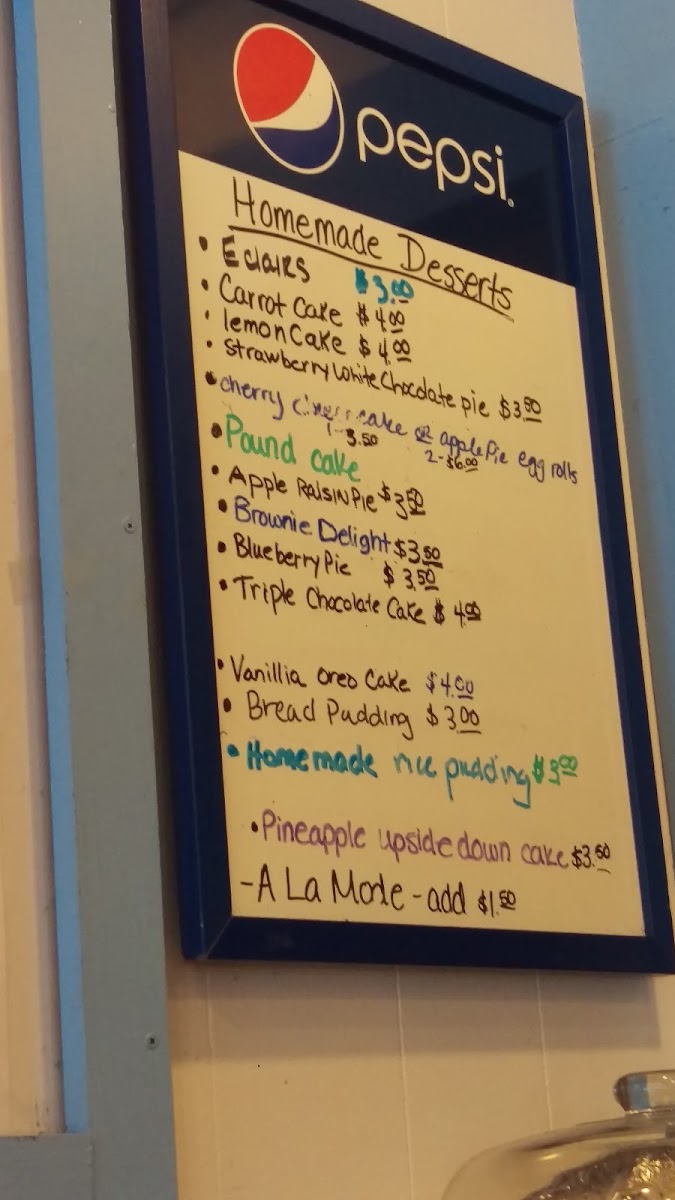 pepsi
Homemade Desserts
• Eclairs $3.00
• Carrot Cake $4.00
• lemon Cake $4.00
• Strawberry White Chocolate pie $3.50
• cherry cheesecake or apple Pie egg rolls
1-3.50 2-$6.00
• Pound cake
• Apple Raisin Pie $3.50
• Brownie Delight $3.50
• Blueberry Pie $3.50
• Triple Chocolate Cake $4.00
• Vanillia Oreo Cake $4.00
• Bread Pudding $3.00
• Homemade rice pudding $3.00
• Pineapple upside down cake $3.50
- A La Mode - add $1.50